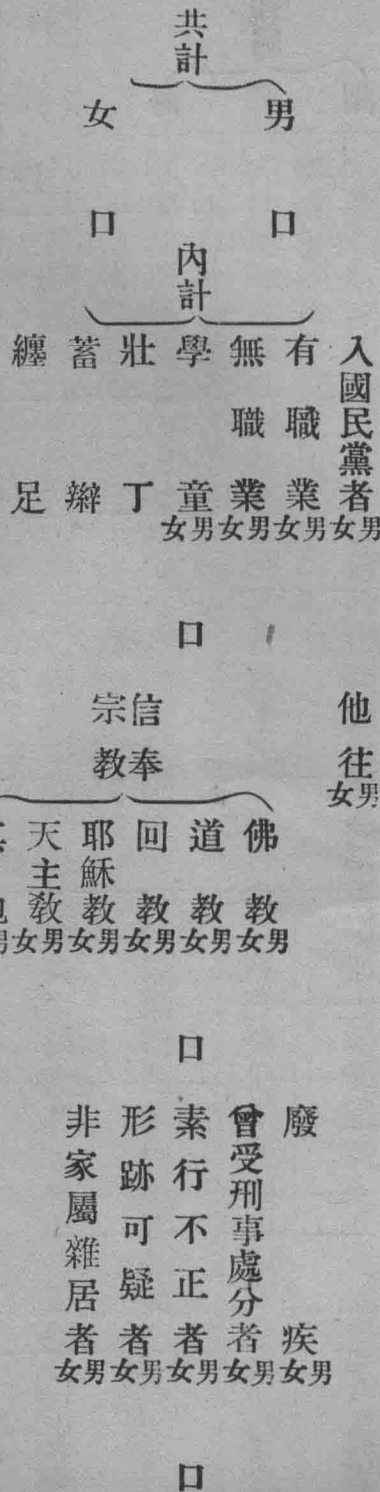 共計
男 口
女 口
內計
入國民黨者男女
有職業男女
無職業男女
學童男女
壯丁
蓄辮
纏足
口
他往男女
信奉宗教
佛教男女
道教男女
回教男女
耶穌教男女
天主教男女
口
廢疾男女
曾受刑事處分者男女
素行不正者男女
形跡可疑者男女
非家屬雜居者男女
口